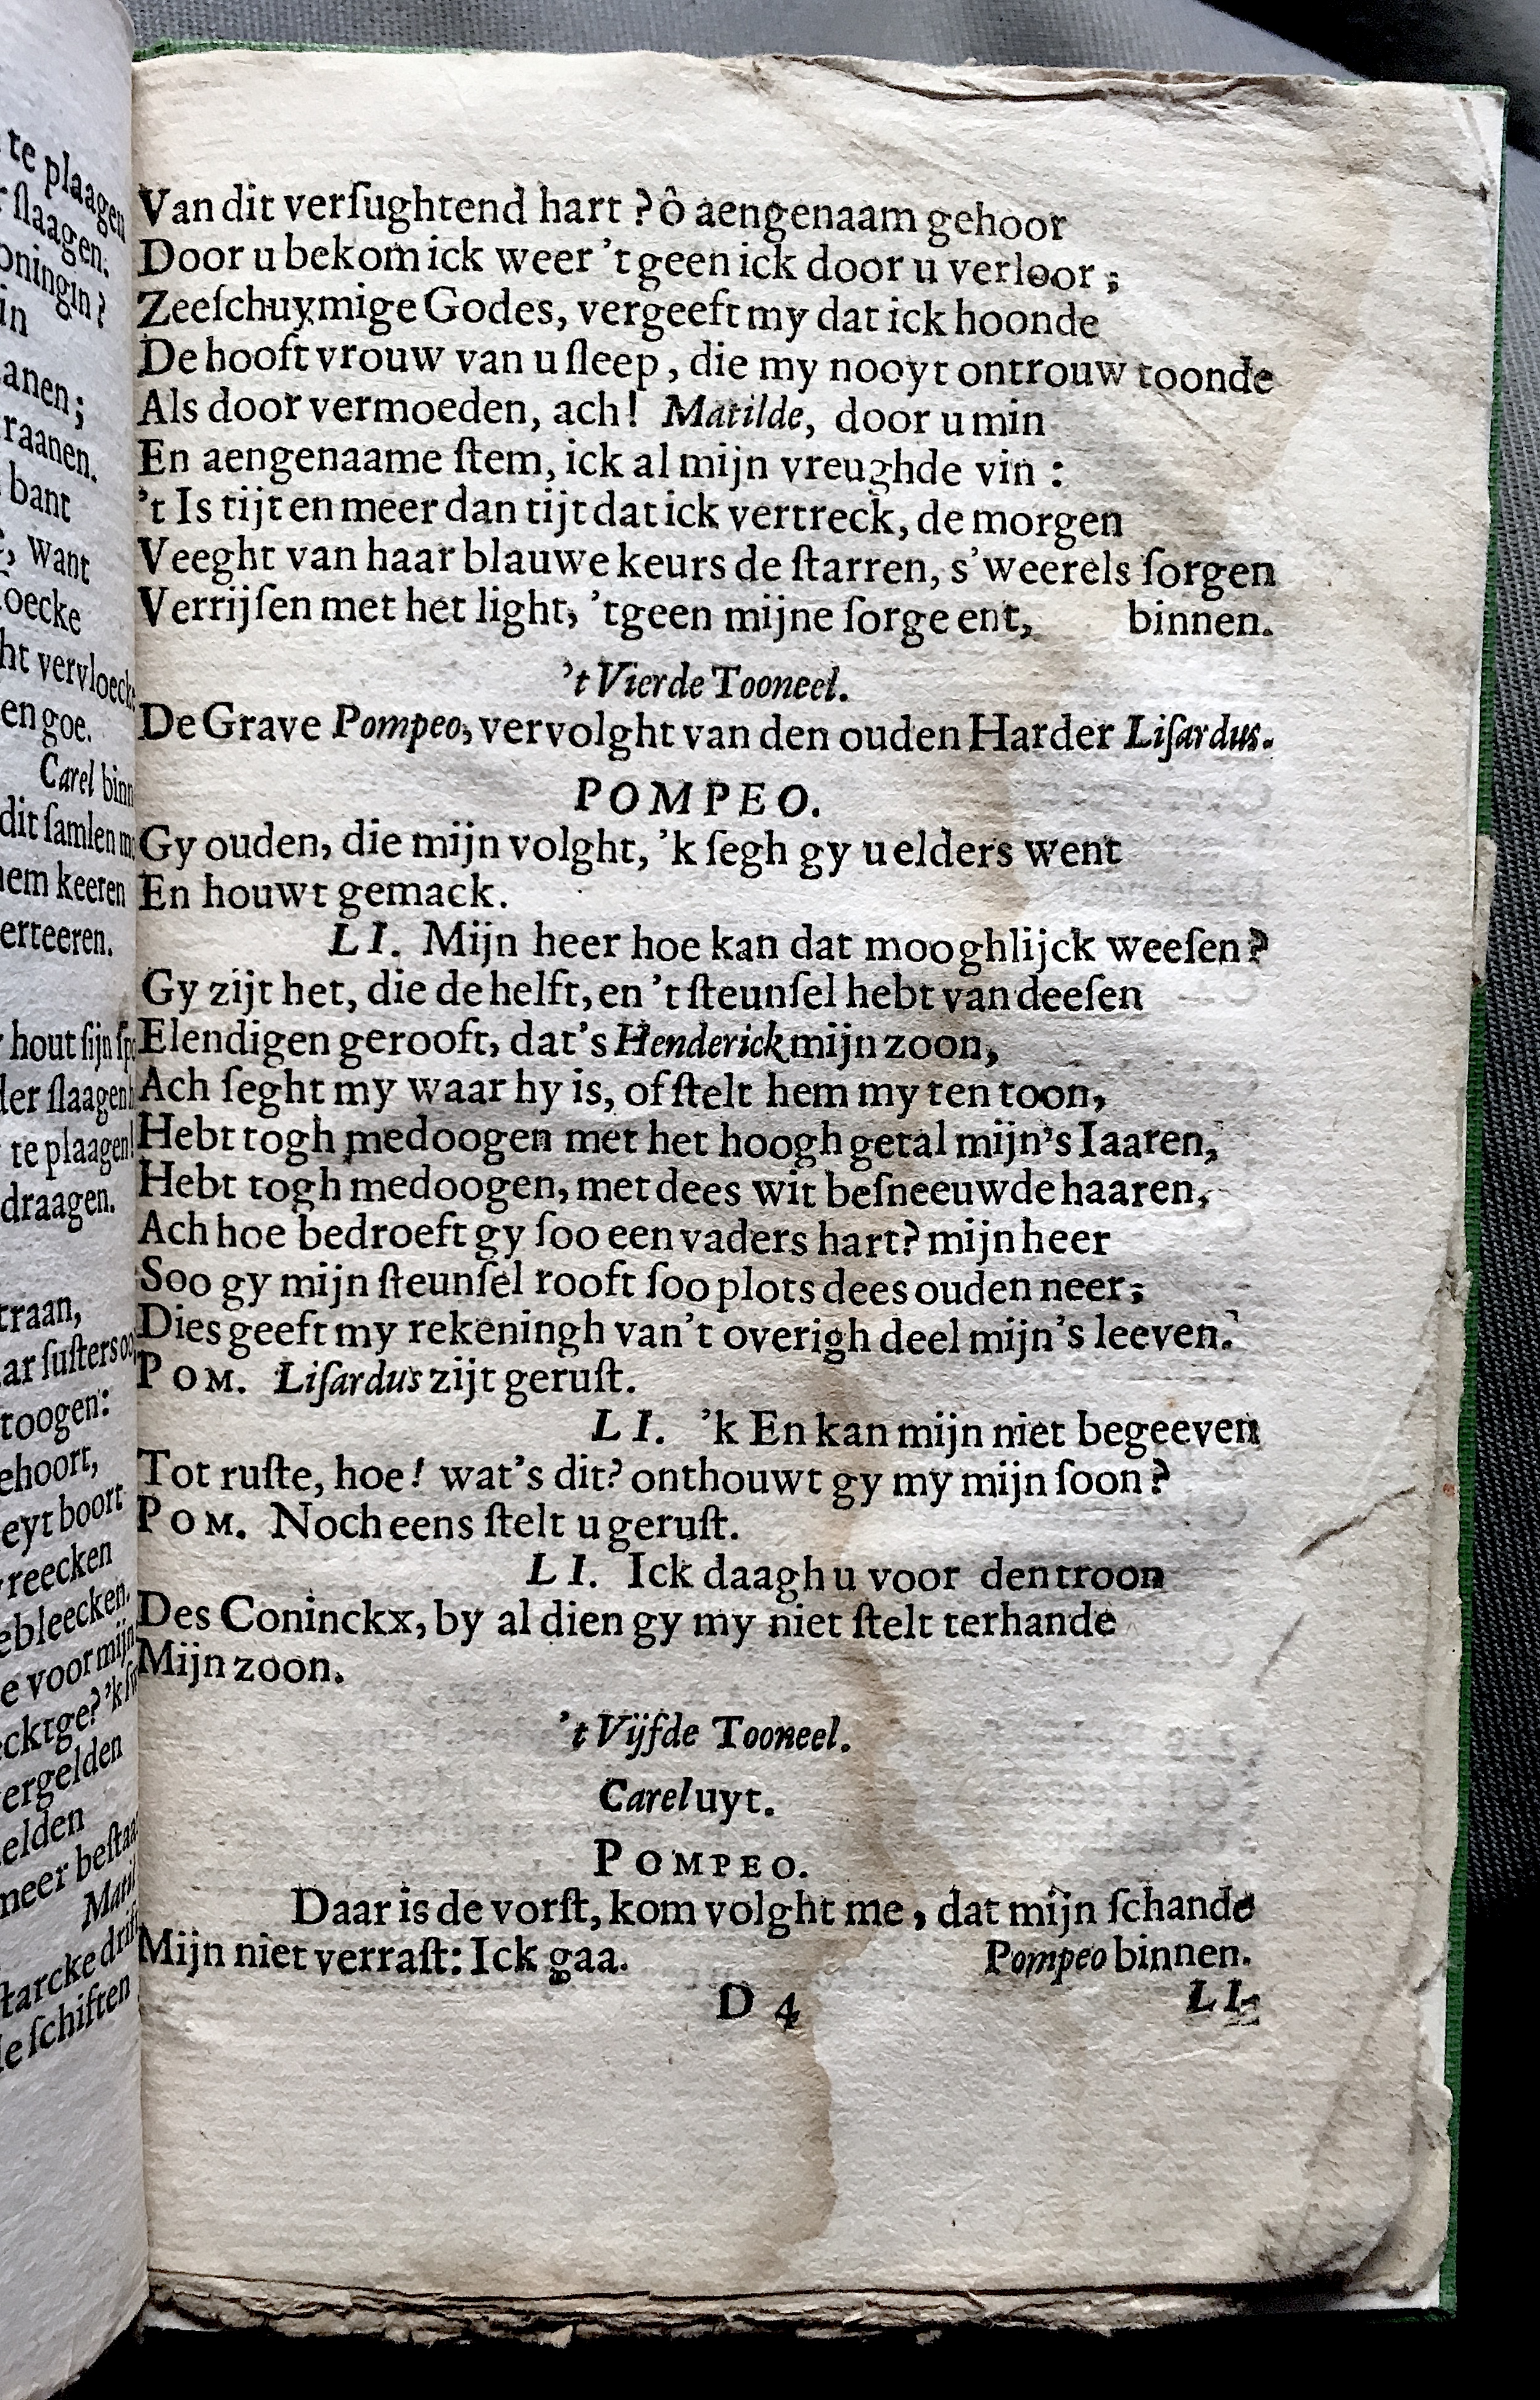 Van dit verſughtend hart ? ô aengenaam gehoor
Door u bekom ick weer 't geen ick door u verloor ;
Zeeſchuymige Godes, vergeeft my dat ick hoonde
De hooft vrouw van u ſleep, die my nooyt ontrouw toonde
Als door vermoeden, ach! Matilde, door u min
En aengenaame ſtem, ick al mijn vreughde vin :
't Is tijt en meer dan tijt dat ick vertreck, de morgen
Veeght van haar blauwe keurs de ſtarren, s'weerels ſorgen
Verrijſen met het light, 'tgeen mijne ſorge ent, binnen.
't Vierde Tooneel.
De Grave Pompeo, vervolght van den ouden Harder Liſardus.
POMPEO.
Gy ouden, die mijn volght, 'k ſegh gy u elders went
En houwt gemack.
LI. Mijn heer hoe kan dat mooghlijck weeſen?
Gy zijt het, die de helft, en 't ſteunſel hebt van deeſen
Elendigen gerooft, dat's Henderick mijn zoon,
Ach ſeght my waar hy is, of ſtelt hem my ten toon,
Hebt togh medoogen met het hoogh getal mijn's Iaaren,
Hebt togh medoogen, met dees wit beſneeuwde haaren,
Ach hoe bedroeft gy ſoo een vaders hart? mijn heer
Soo gy mijn ſteunſel rooft ſoo plots dees ouden neer;
Dies geeft my rekeningh van't overigh deel mijn's leeven.
POM. Liſardus zijt geruſt.
LI. 'k En kan mijn niet begeeven
Tot ruſte, hoe! wat's dit? onthouwt gy my mijn ſoon?
POM. Noch eens ſtelt u geruſt.
LI. Ick daagh u voor den troon
Des Coninckx, by al dien gy my niet ſtelt terhande
Mijn zoon.
't Vijfde Tooneel.
Carel uyt.
POMPEO.
Daar is de vorſt, kom volght me, dat mijn ſchande
Mijn niet verraſt: Ick gaa. Pompeo binnen.
D 4 LI.